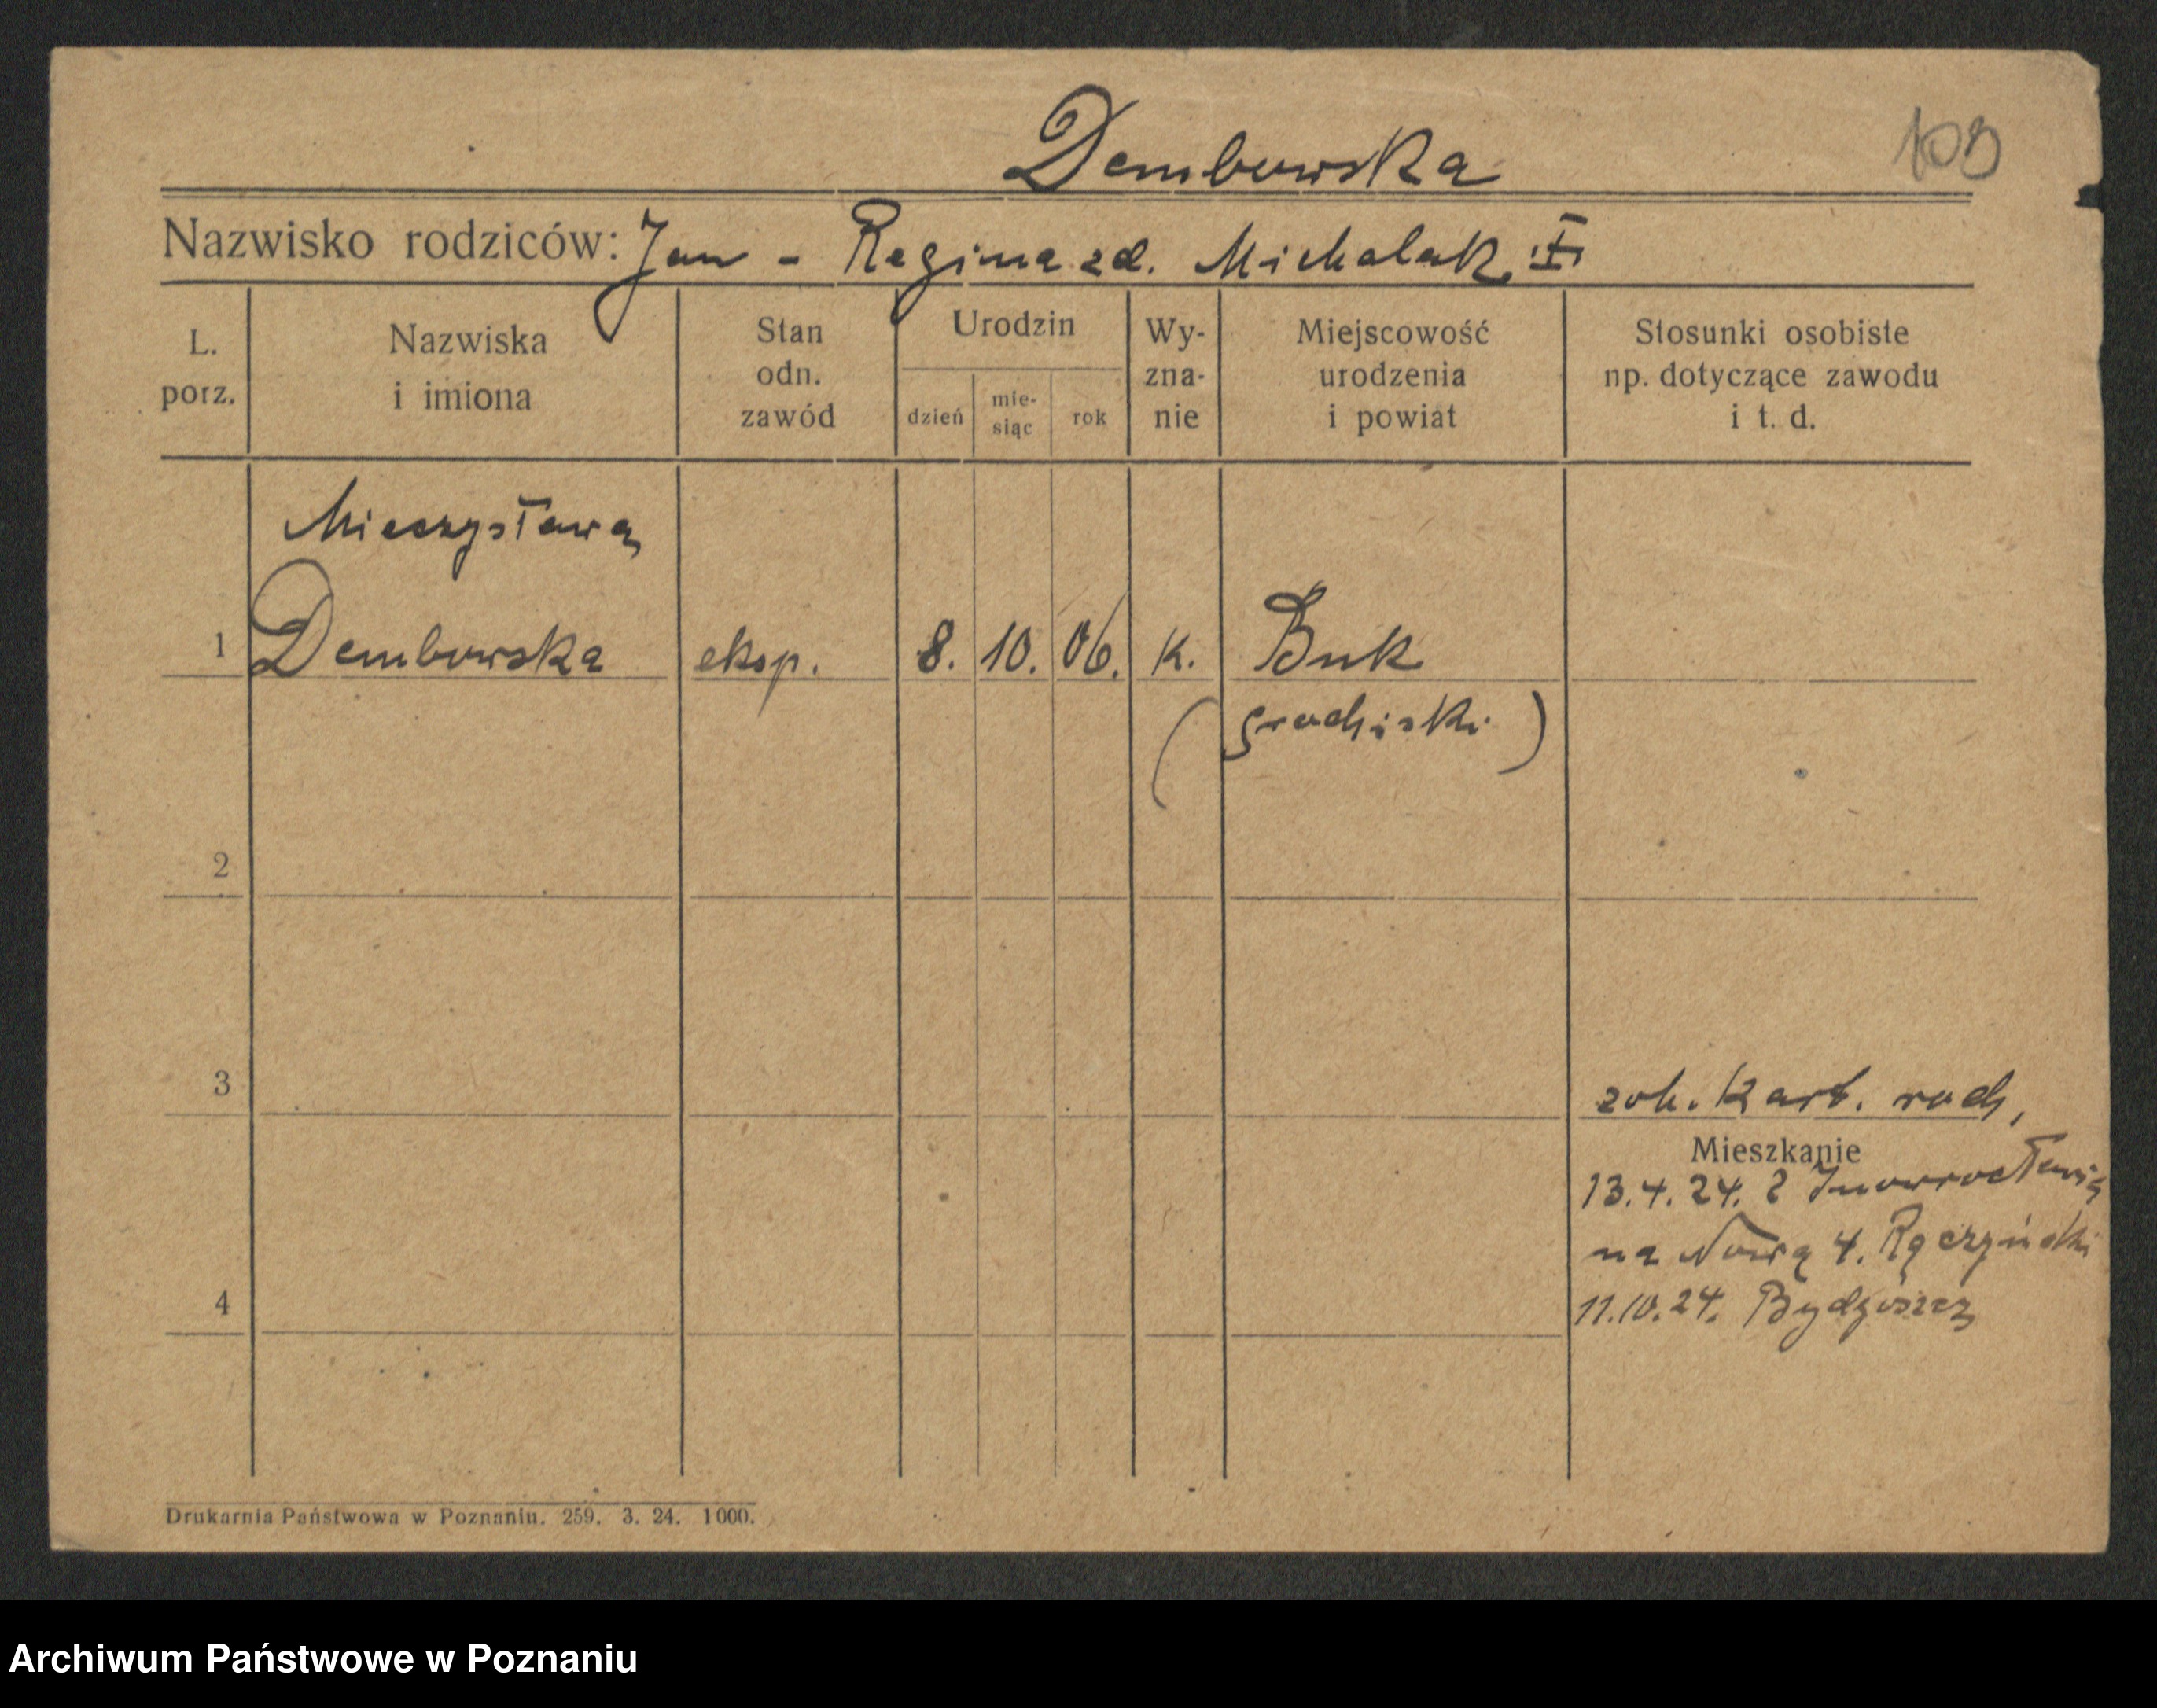 Dembowska
109
Nazwisko rodziców: Jan - Regina zd. Michalak
L. porz.
Nazwiska i imiona
Stan odn. zawód
Urodzin
dzień
mie-siąc
rok
Wy-zna-nie
Miejscowość urodzenia i powiat
Stosunki osobiste np. dotyczące zawodu i t. d.
Mieczysława
1 Dembowska eksp. 8. 10. 06. K. Buk
(grodziski)
2
3
zob. Kart. rodz,
Mieszkanie
13.4.24. z Inowrocławia
na Nową 4. Rączyński
4
11.10.24. Bydgoszcz
Drukarnia Państwowa w Poznaniu. 259. 3. 24. 1000.
Archiwum Państwowe w Poznaniu